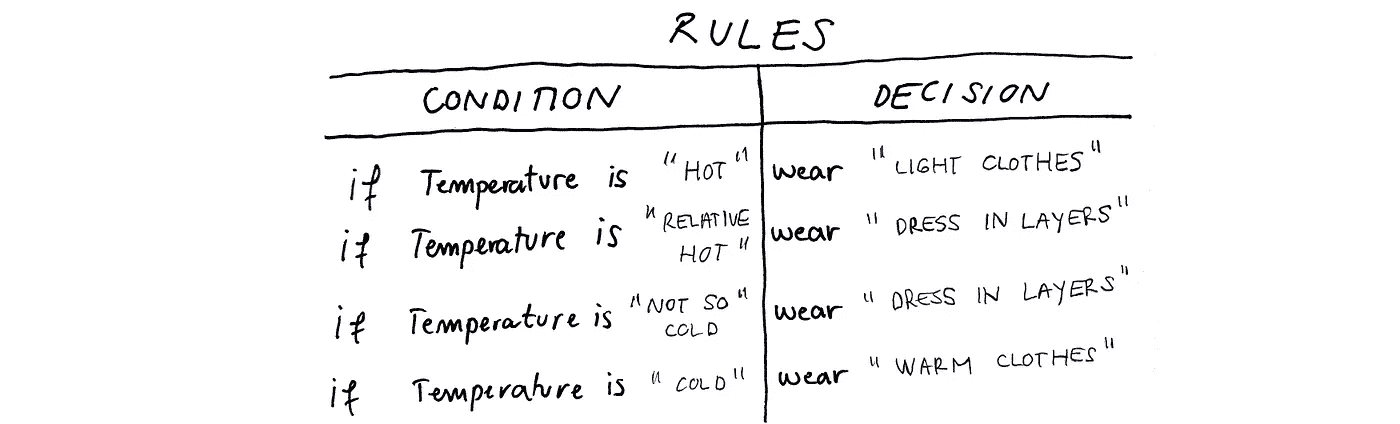 RULES
CONDITION DECISION
if Temperature is "HOT" wear "LIGHT CLOTHES"
if Temperature is "RELATIVE HOT" wear "DRESS IN LAYERS"
if Temperature is "NOT SO" COLD wear "DRESS IN LAYERS"
if Temperature is "COLD" wear "WARM CLOTHES"